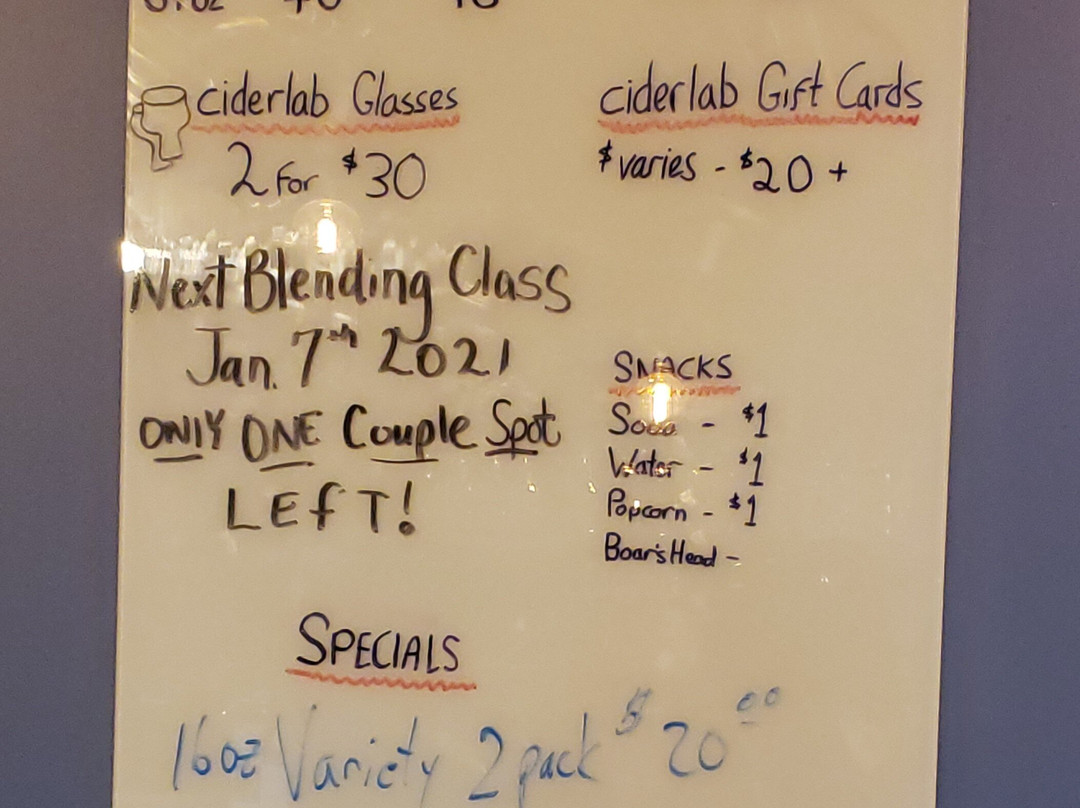 ciderlab Glasses
2 For $30
ciderlab Gift Cards
$ varies - $20 +
Next Blending Class
Jan. 7th 2021
ONLY ONE Couple Spot
LEfT!
SNACKS
Soda - $1
Water - $1
Popcorn - $1
Boar's Head -
SPECIALS
16oz Variety 2 pack $20.00